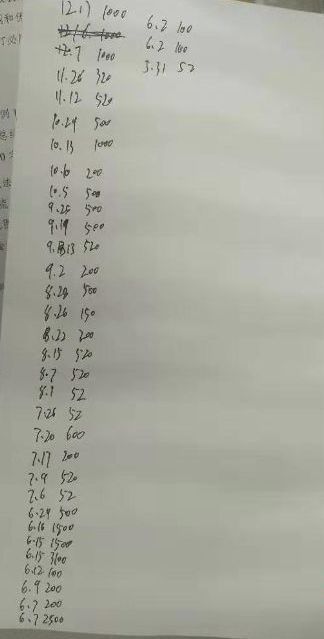 12.17 1000
12.7 1000
11.26 320
11.12 520
10.24 500
10.13 1000
10.6 200
10.5 500
9.25 500
9.19 500
9.13 520
9.2 200
8.28 500
8.26 150
8.22 200
8.15 520
8.7 520
8.1 52
7.26 52
7.20 600
7.17 200
7.9 520
7.6 52
6.29 500
6.16 1500
6.15 1500
6.15 3100
6.12 100
6.9 200
6.7 200
6.7 2500
6.2 100
6.2 100
3.31 52